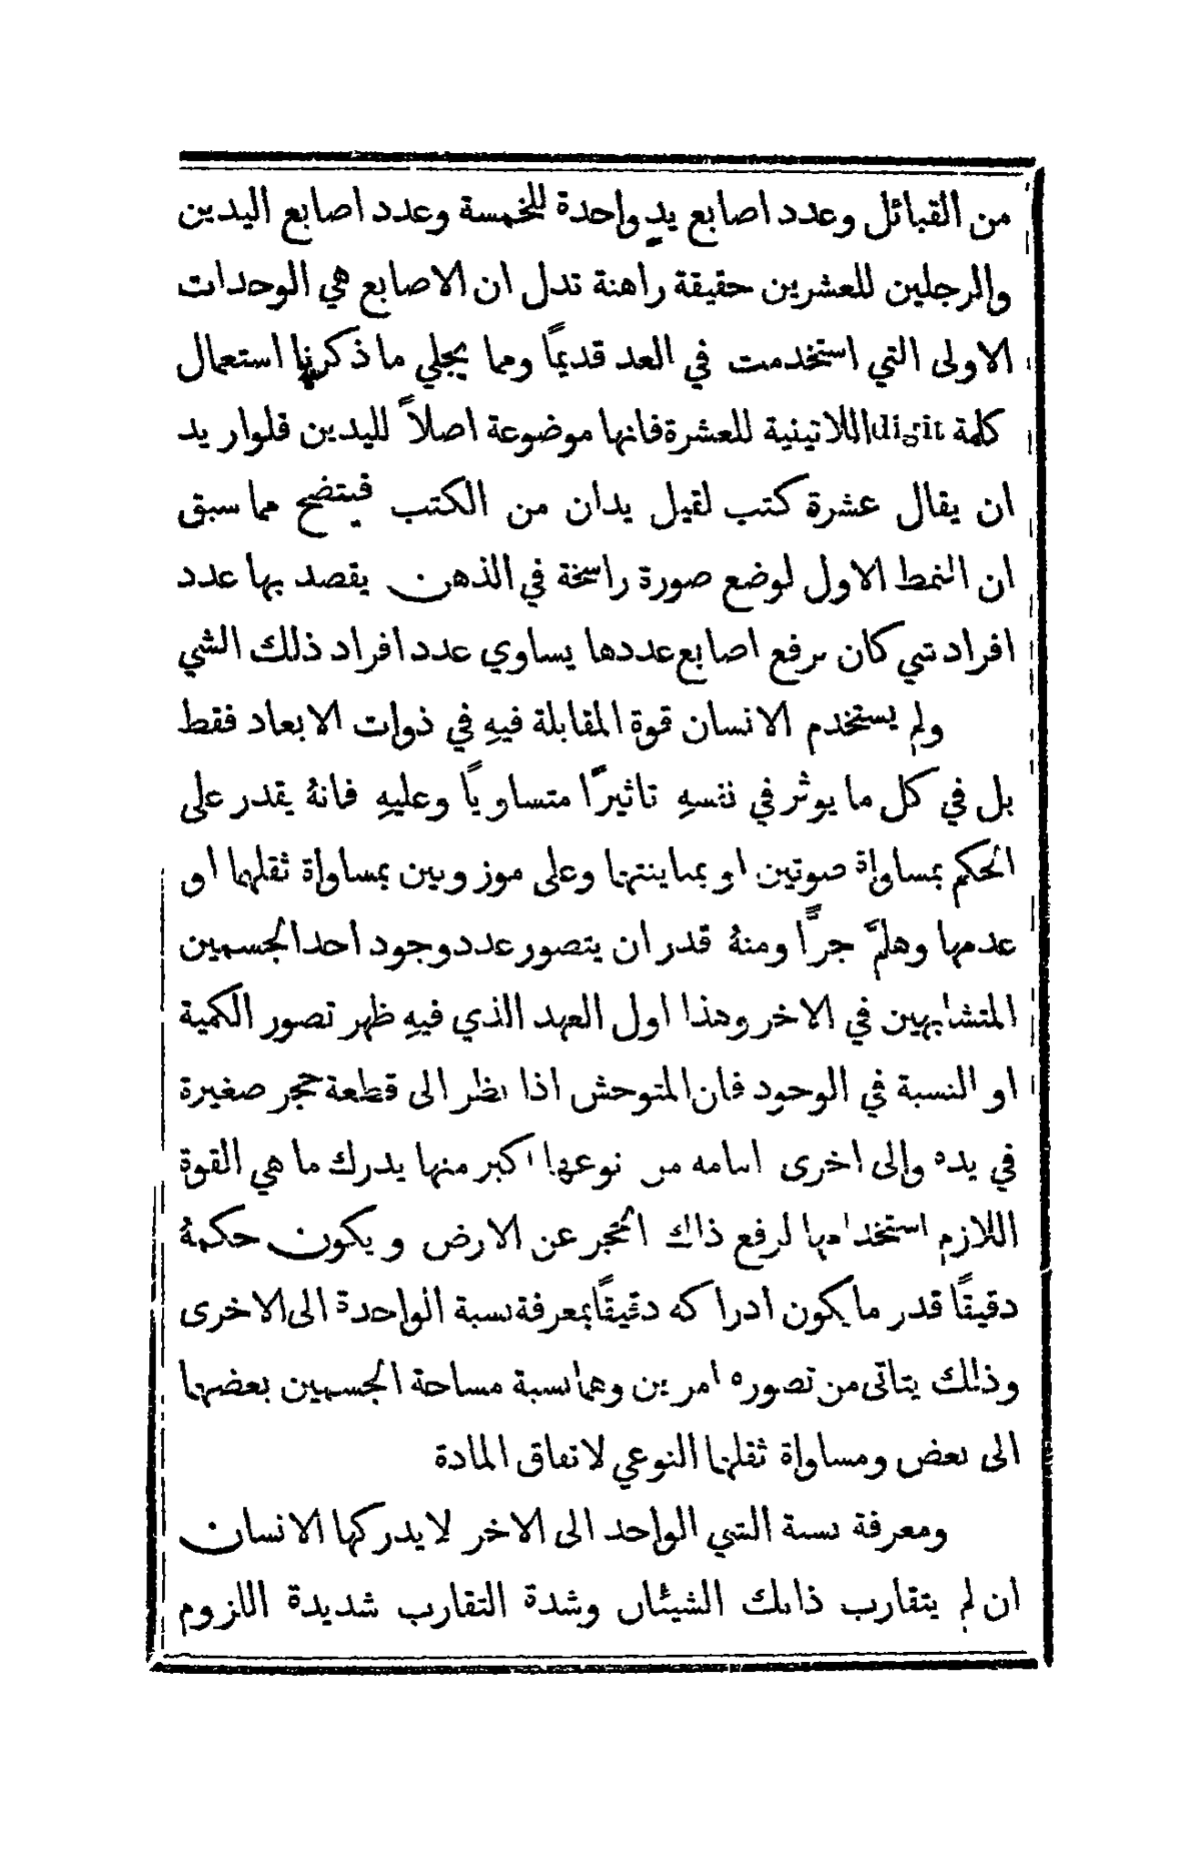 من القبائل وعدد اصابع يدٍ واحدة للخمسة وعدد اصابع اليدين
والرجلين للعشرين حقيقة راهنة تدل ان الاصابع هي الوحدات
الاولى التي استخدمت في العد قديمًا ومما يجلي ما ذكر استعمال
كلمة digit اللاتينية للعشرة فانها موضوعة اصلاً لليدين فلو اريد
ان يقال عشرة كتب لقيل يدان من الكتب فيتضح مما سبق
ان النمط الاول لوضع صورة راسخة في الذهن يقصد بها عدد
افراد شي كان برفع اصابع عددها يساوي عدد افراد ذلك الشي
ولم يستخدم الانسان قوة المقابلة فيهِ في ذوات الابعاد فقط
بل في كل ما يوثر في نفسهِ تاثيرًا متساويًا وعليهِ فانهُ يقدر على
الحكم بمساواة صوتين او بمباينتها وعلى موزوبين بمساواة ثقلهما او
عدمها وهلمَّ جرًّا ومنهُ قدر ان يتصور عدد وجود احد الجسمين
المتشابهين في الاخر وهذا اول العهد الذي فيهِ ظهر تصور الكمية
او النسبة في الوجود فان المتوحش اذا نظر الى قطعة حجر صغيرة
في يده والى اخرى امامه من نوعها اكبر منها يدرك ما هي القوة
اللازم استخدامها لرفع ذاك الحجر عن الارض ويكون حكمهُ
دقيقًا قدر ما يكون ادراكه دقيقًا بمعرفة نسبة الواحدة الى الاخرى
وذلك يتاتى من تصوره امرين وهما نسبة مساحة الجسمين بعضها
الى بعض ومساواة ثقلها النوعي لاتفاق المادة
ومعرفة نسبة الشي الواحد الى الاخر لا يدركها الانسان
ان لم يتقارب ذانك الشيئان وشدة التقارب شديدة اللزوم